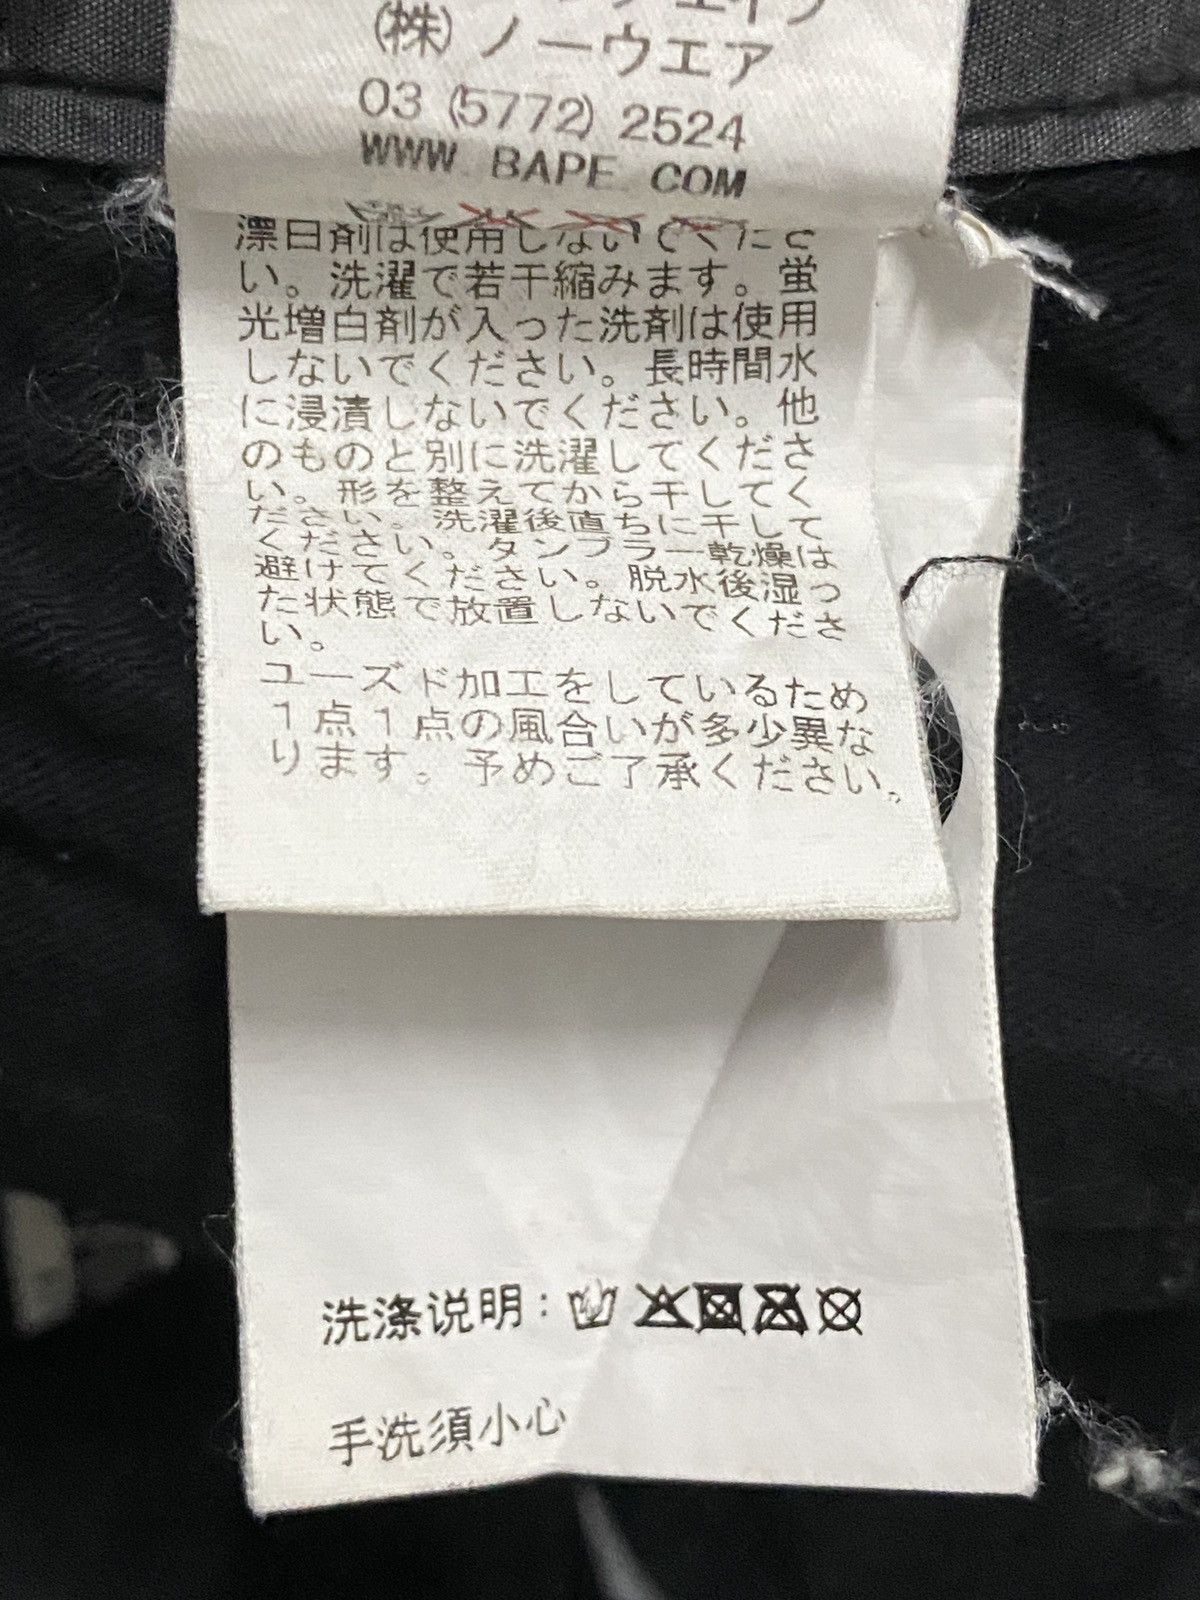 (株)ノーウエア
03 (5772) 2524
WWW. BAPE. COM
漂白剤は使用しないでくださ
い。洗濯で若干縮みます。蛍
光増白剤が入った洗剤は使用
しないでください。長時間水
に浸漬しないでください。他
のものと別に洗濯してくださ
い。形を整えてから干してく
ださい。洗濯後直ちに干して
ください。タンブラー乾燥は
避けてください。脱水後湿っ
た状態で放置しないでくださ
い。
ユーズド加工をしているため
1点1点の風合いが多少異な
ります。予めご了承ください。
洗涤说明:
手洗須小心